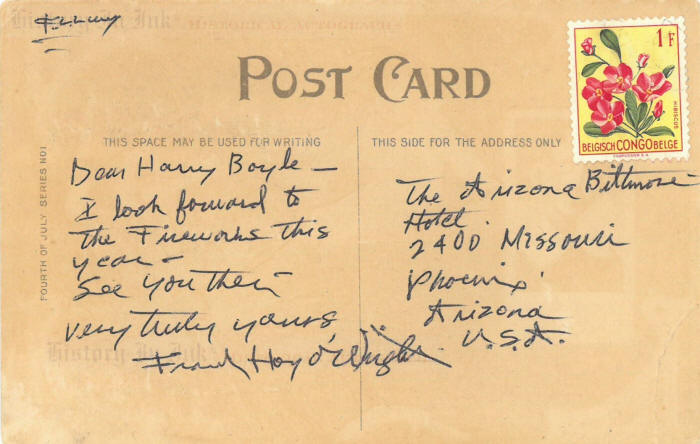 F.L.Wright
History In Ink
POST CARD
1 F
HIBISCUS
BELGISCH CONGO BELGE
THIS SPACE MAY BE USED FOR WRITING
THIS SIDE FOR THE ADDRESS ONLY
FOURTH OF JULY SERIES NO1
Dear Harry Boyle —
I look forward to
the Fireworks this
year —
See you then —
very truly yours
Frank Lloyd Wright
The Arizona Biltmore
Hotel.
2400 Missouri
Phoenix
Arizona
U.S.A.
History In Ink